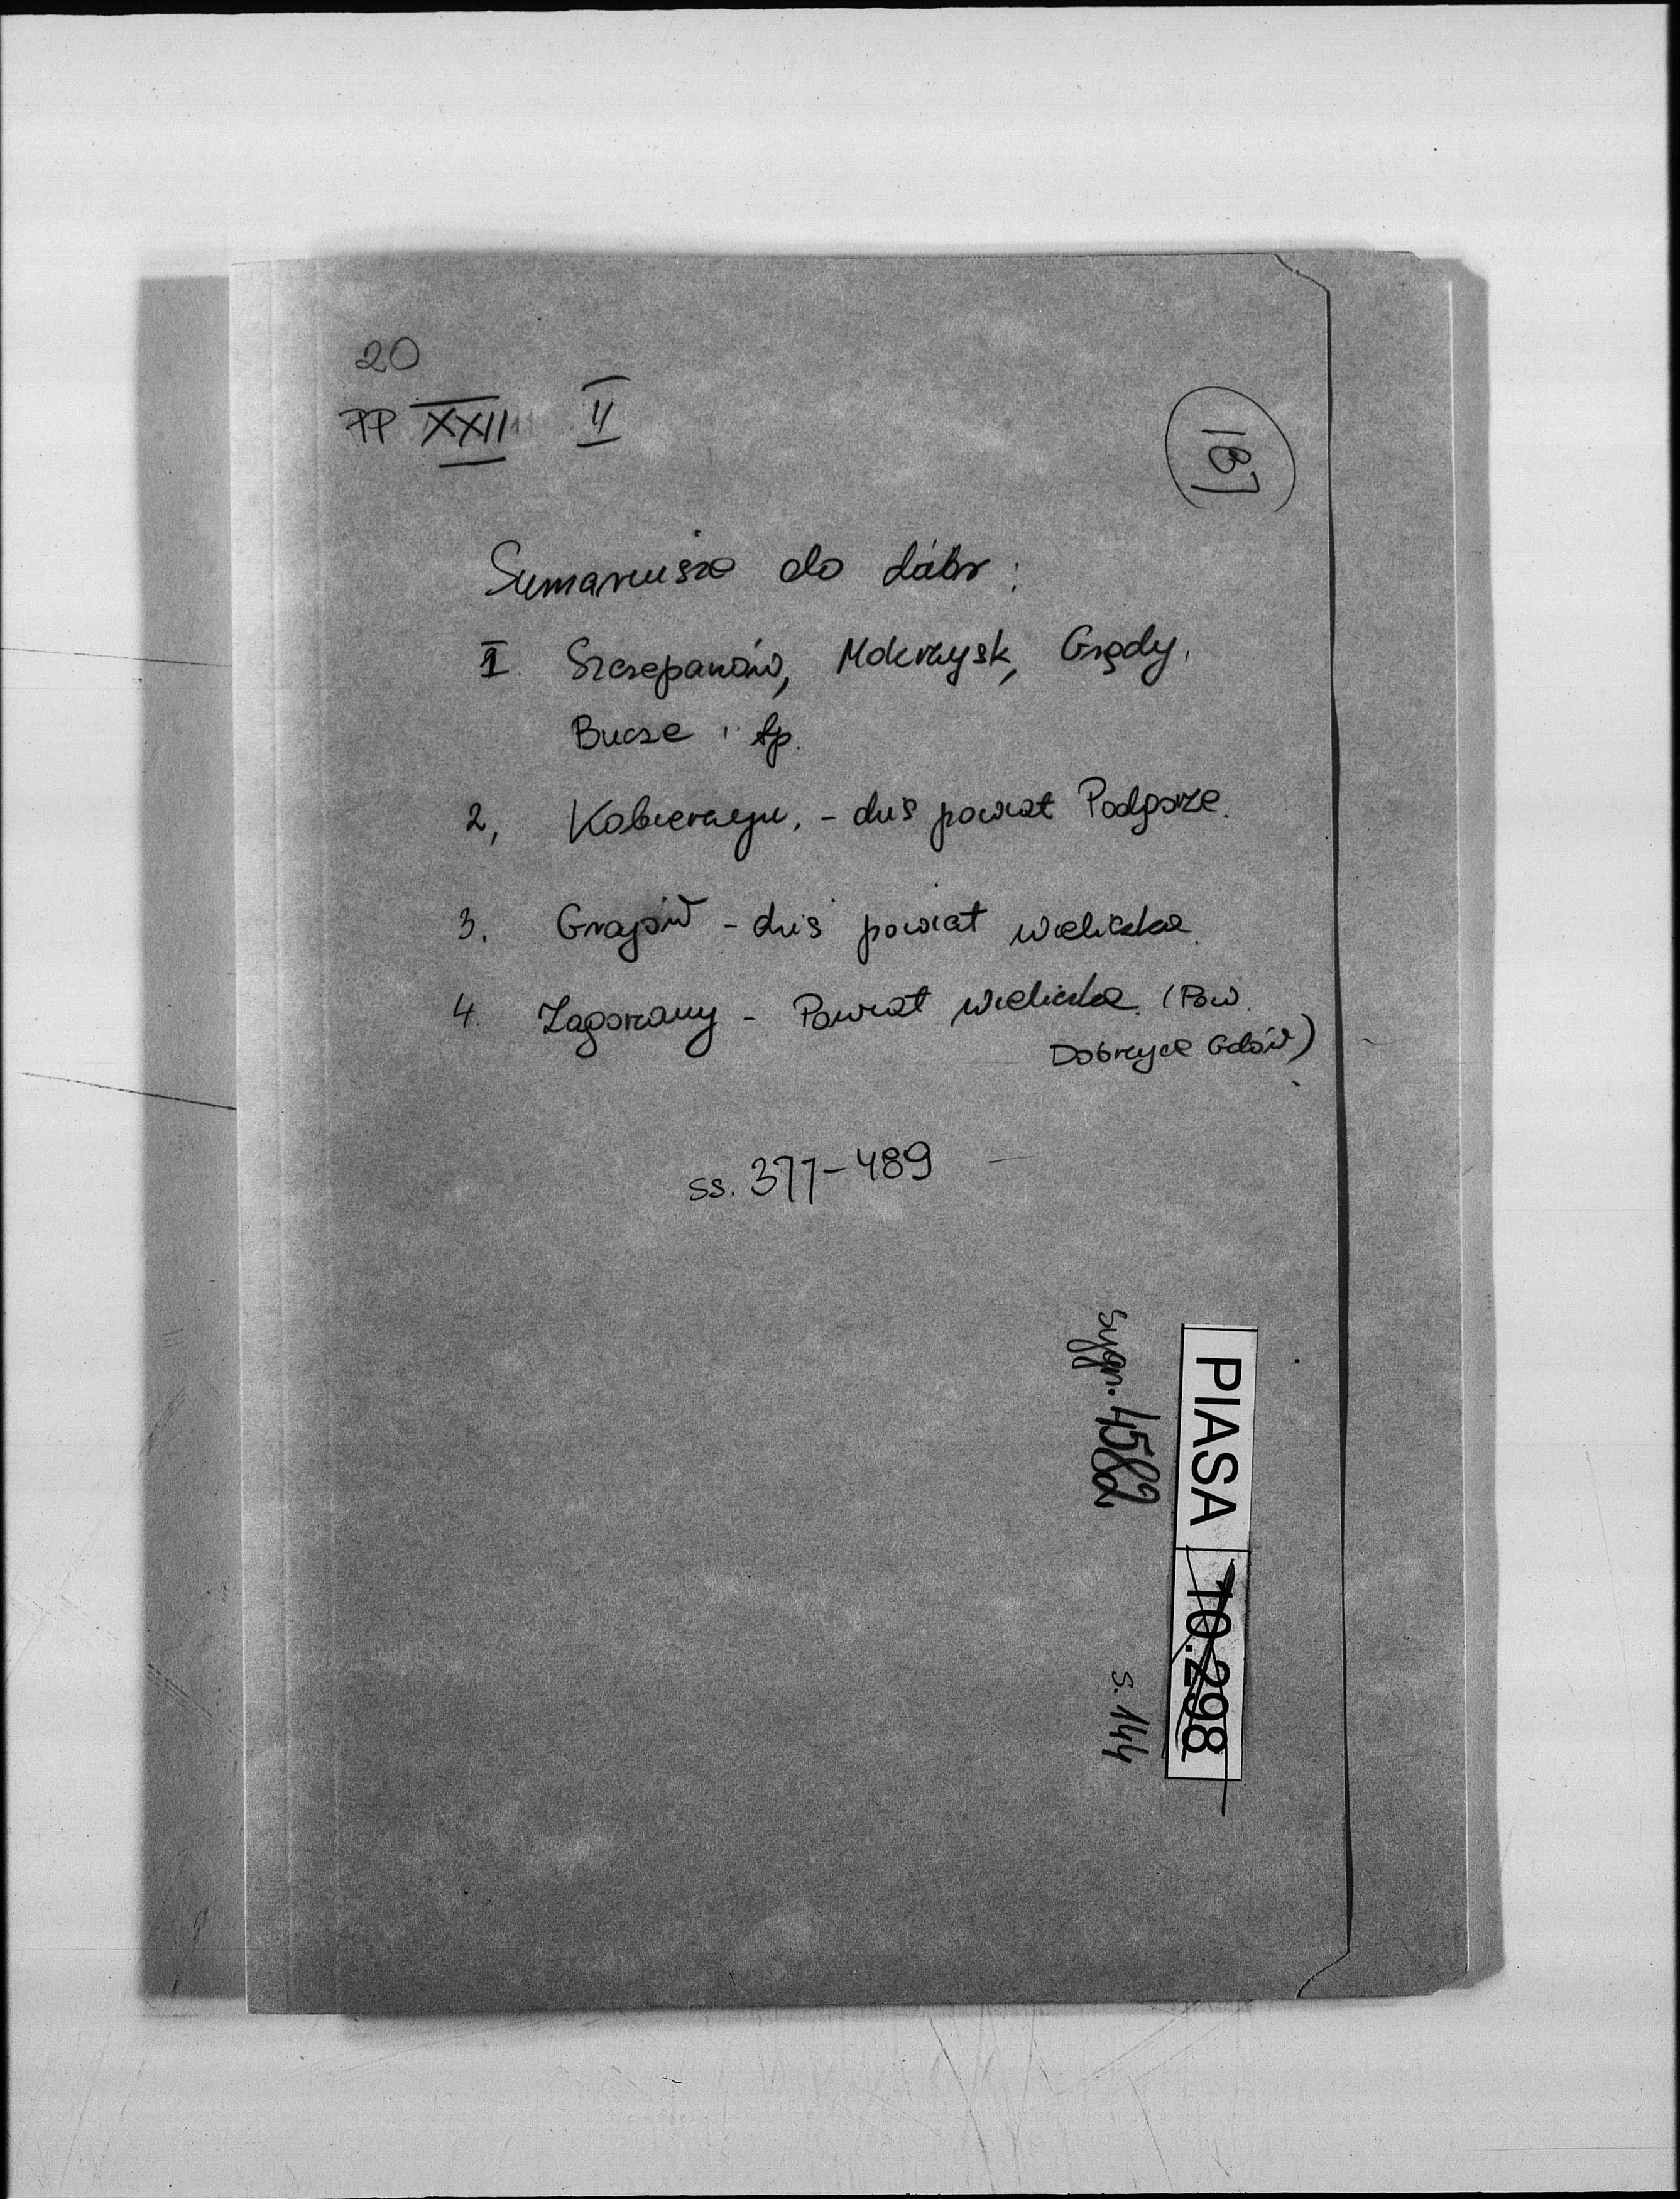 20
PP XXII II
187
Sumariusze do dóbr:
1. Szczepanów, Mokrzysk, Grądy,
Bucze i tp.
2, Kobierzyn, - dziś powiat Podgórze.
3. Grajów - dziś powiat wieliczka.
4. Zagórzany - Powiat wieliczka. (Pow.
Dobczyce Gdów)
ss. 377-489
sygn. 4582
PIASA 10.298
s. 144